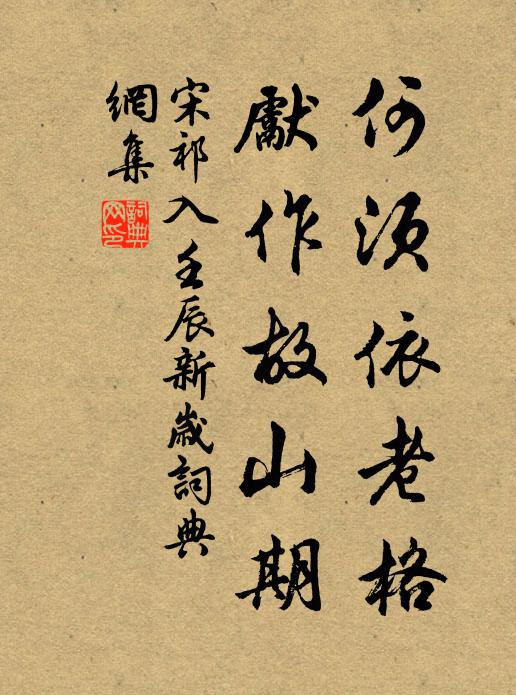 何須依老格
獻作故山期
宋祁入壬辰新歲詞典
網集
詞典
網印